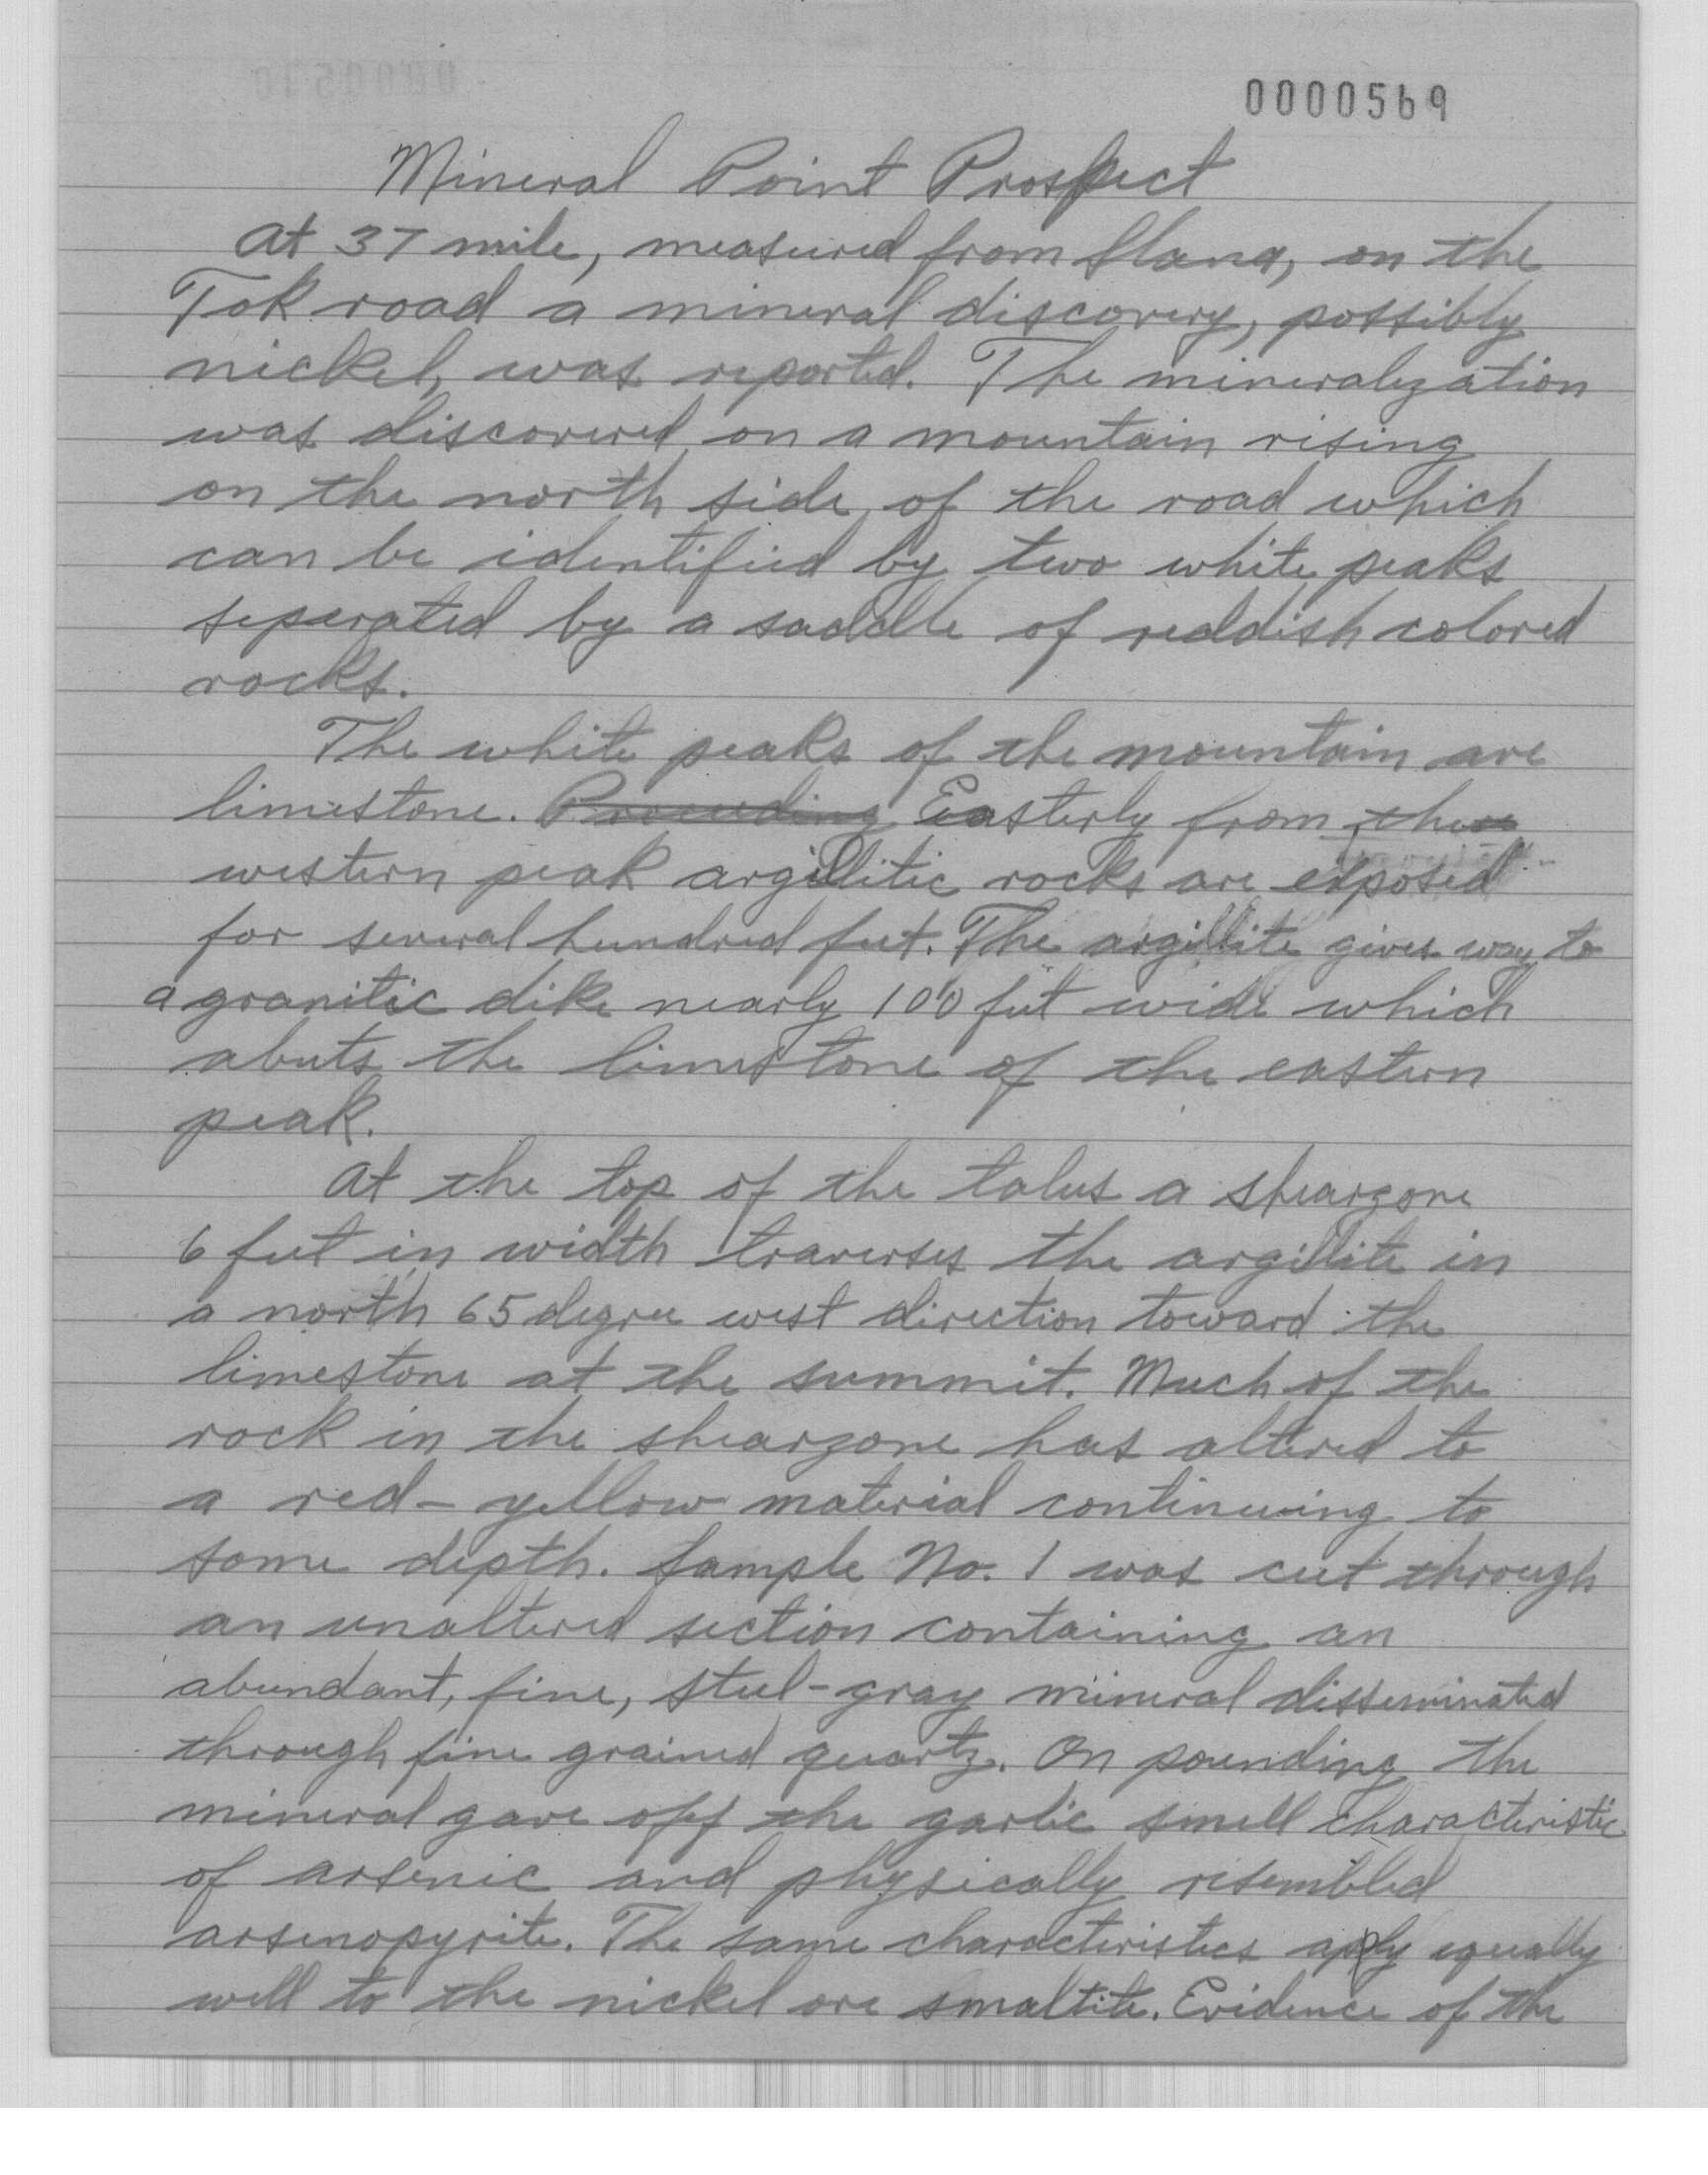 0000569
Mineral Point Prospect
At 37 mile, measured from Slana, on the
Tok road a mineral discovery, possibly
nickel, was reported. The mineralization
was discovered on a mountain rising
on the north side of the road which
can be identified by two white peaks
seperated by a saddle of reddish colored
rocks.
The white peaks of the mountain are
limestone. Proceeding Easterly from the
western peak argillitic rocks are exposed
for several hundred feet. The argillite gives way to
a granitic dike nearly 100 feet wide which
abuts the limestone of the eastern
peak.
At the top of the talus a shearzone
6 feet in width traverses the argillite in
a north 65 degree west direction toward the
limestone at the summit. Much of the
rock in the shearzone has altered to
a red-yellow material continuing to
some depth. Sample No. 1 was cut through
an unaltered section containing an
abundant, fine, steel-gray mineral disseminated
through fine grained quartz. On pounding the
mineral gave off the garlic smell characteristic
of arsenic and physically resembled
arsenopyrite. The same characteristics apply equally
well to the nickel ore smaltite. Evidence of the